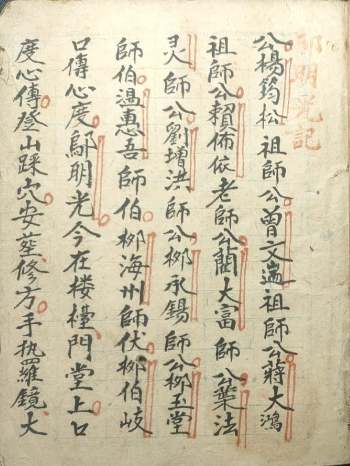 鄔明光記
公楊筠松祖師公曾文遄祖師公蔣大鴻
祖師公賴佈依老師公蘭大富師公葉法
灵師公劉埔洪師公柳永錫師公柳玉堂
師伯溫惠吾師伯柳海州師伏柳伯岐
口傳心度鄔明光今在楼檯門堂上口
度心傳登山踩穴安葬修方手执羅鏡大